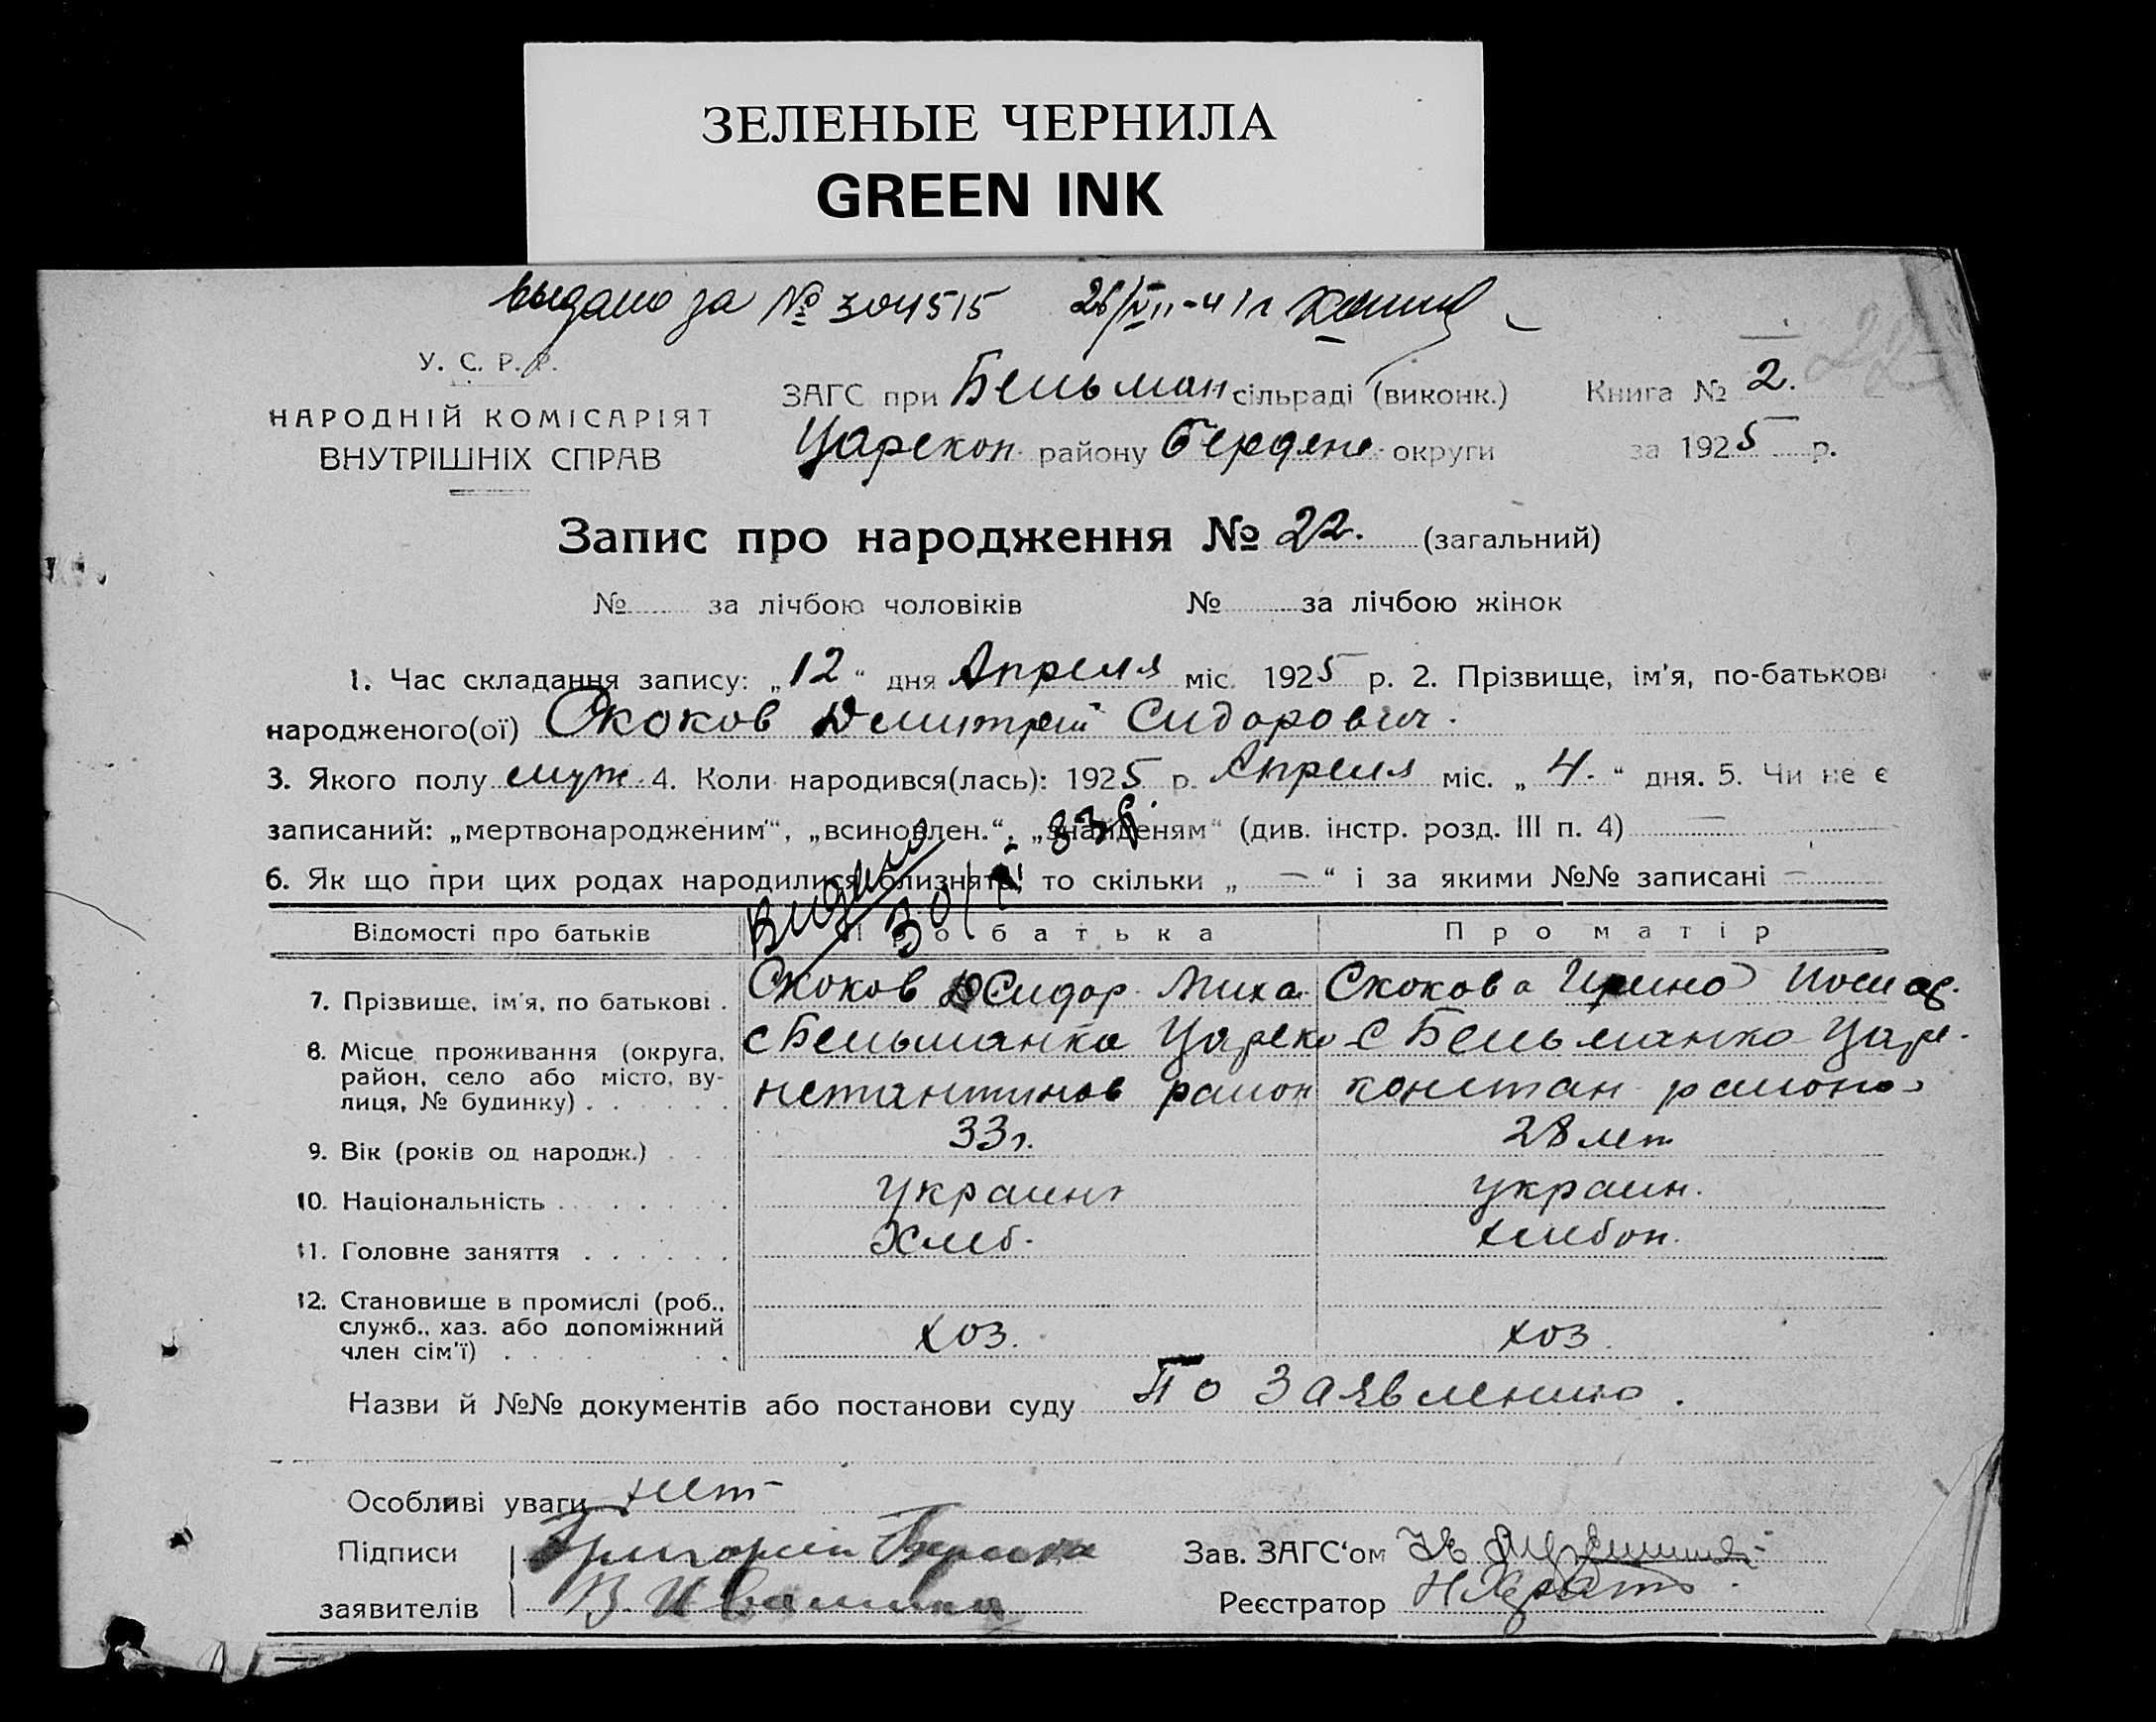 ЗЕЛЕНЫЕ ЧЕРНИЛА
GREEN INK
выдано за № 304515 26/VII-41 г
У. С. Р. Р.
НАРОДНІЙ КОМІСАРІЯТ
ВНУТРІШНІХ СПРАВ
ЗАГС при Бельман сільраді (виконк.)
Царекон району Бердянс. округи
Книга № 2.
за 1925 р.
Запис про народження № 22. (загальний)
№ за лічбою чоловіків № за лічбою жінок
1. Час складання запису: „12“ дня Апреля міс. 1925 р. 2. Прізвище, ім'я, по-батькові
народженого(ої) Скоков Дмитрий Сидорович.
3. Якого полу муж. 4. Коли народився(лась): 1925 р. Апреля міс. „4.“ дня. 5. Чи не є
записаний: „мертвонародженим“, „всиновлен.“, „знайденям“ (див. інстр. розд. III п. 4) —
6. Як що при цих родах народилися близнята, то скільки „ — “ і за якими №№ записані —
Видано
Відомості про батьків Про батька Про матір
7. Прізвище, ім'я, по батькові . Скоков Сидор Миха. Скокова Ирина
8. Місце проживання (округа, с Бельманка Цареко с Бельманка Царе-
район, село або місто, ву-
лиця, № будинку) . . . . . . нстантинов район констан района
9. Вік (років од народж.) 33 г. 28 лет
10. Національність . . . . . . . украин. украин.
11. Головне заняття . . . . . . Хлеб. хлебоп.
12. Становище в промислі (роб.,
служб., хаз. або допоміжний
член сім'ї) . . . хоз. хоз.
Назви й №№ документів або постанови суду По Заявлению.
Особливі уваги нет
Підписи Григорій Зав. ЗАГС'ом
заявителів В. Иванина Реєстратор